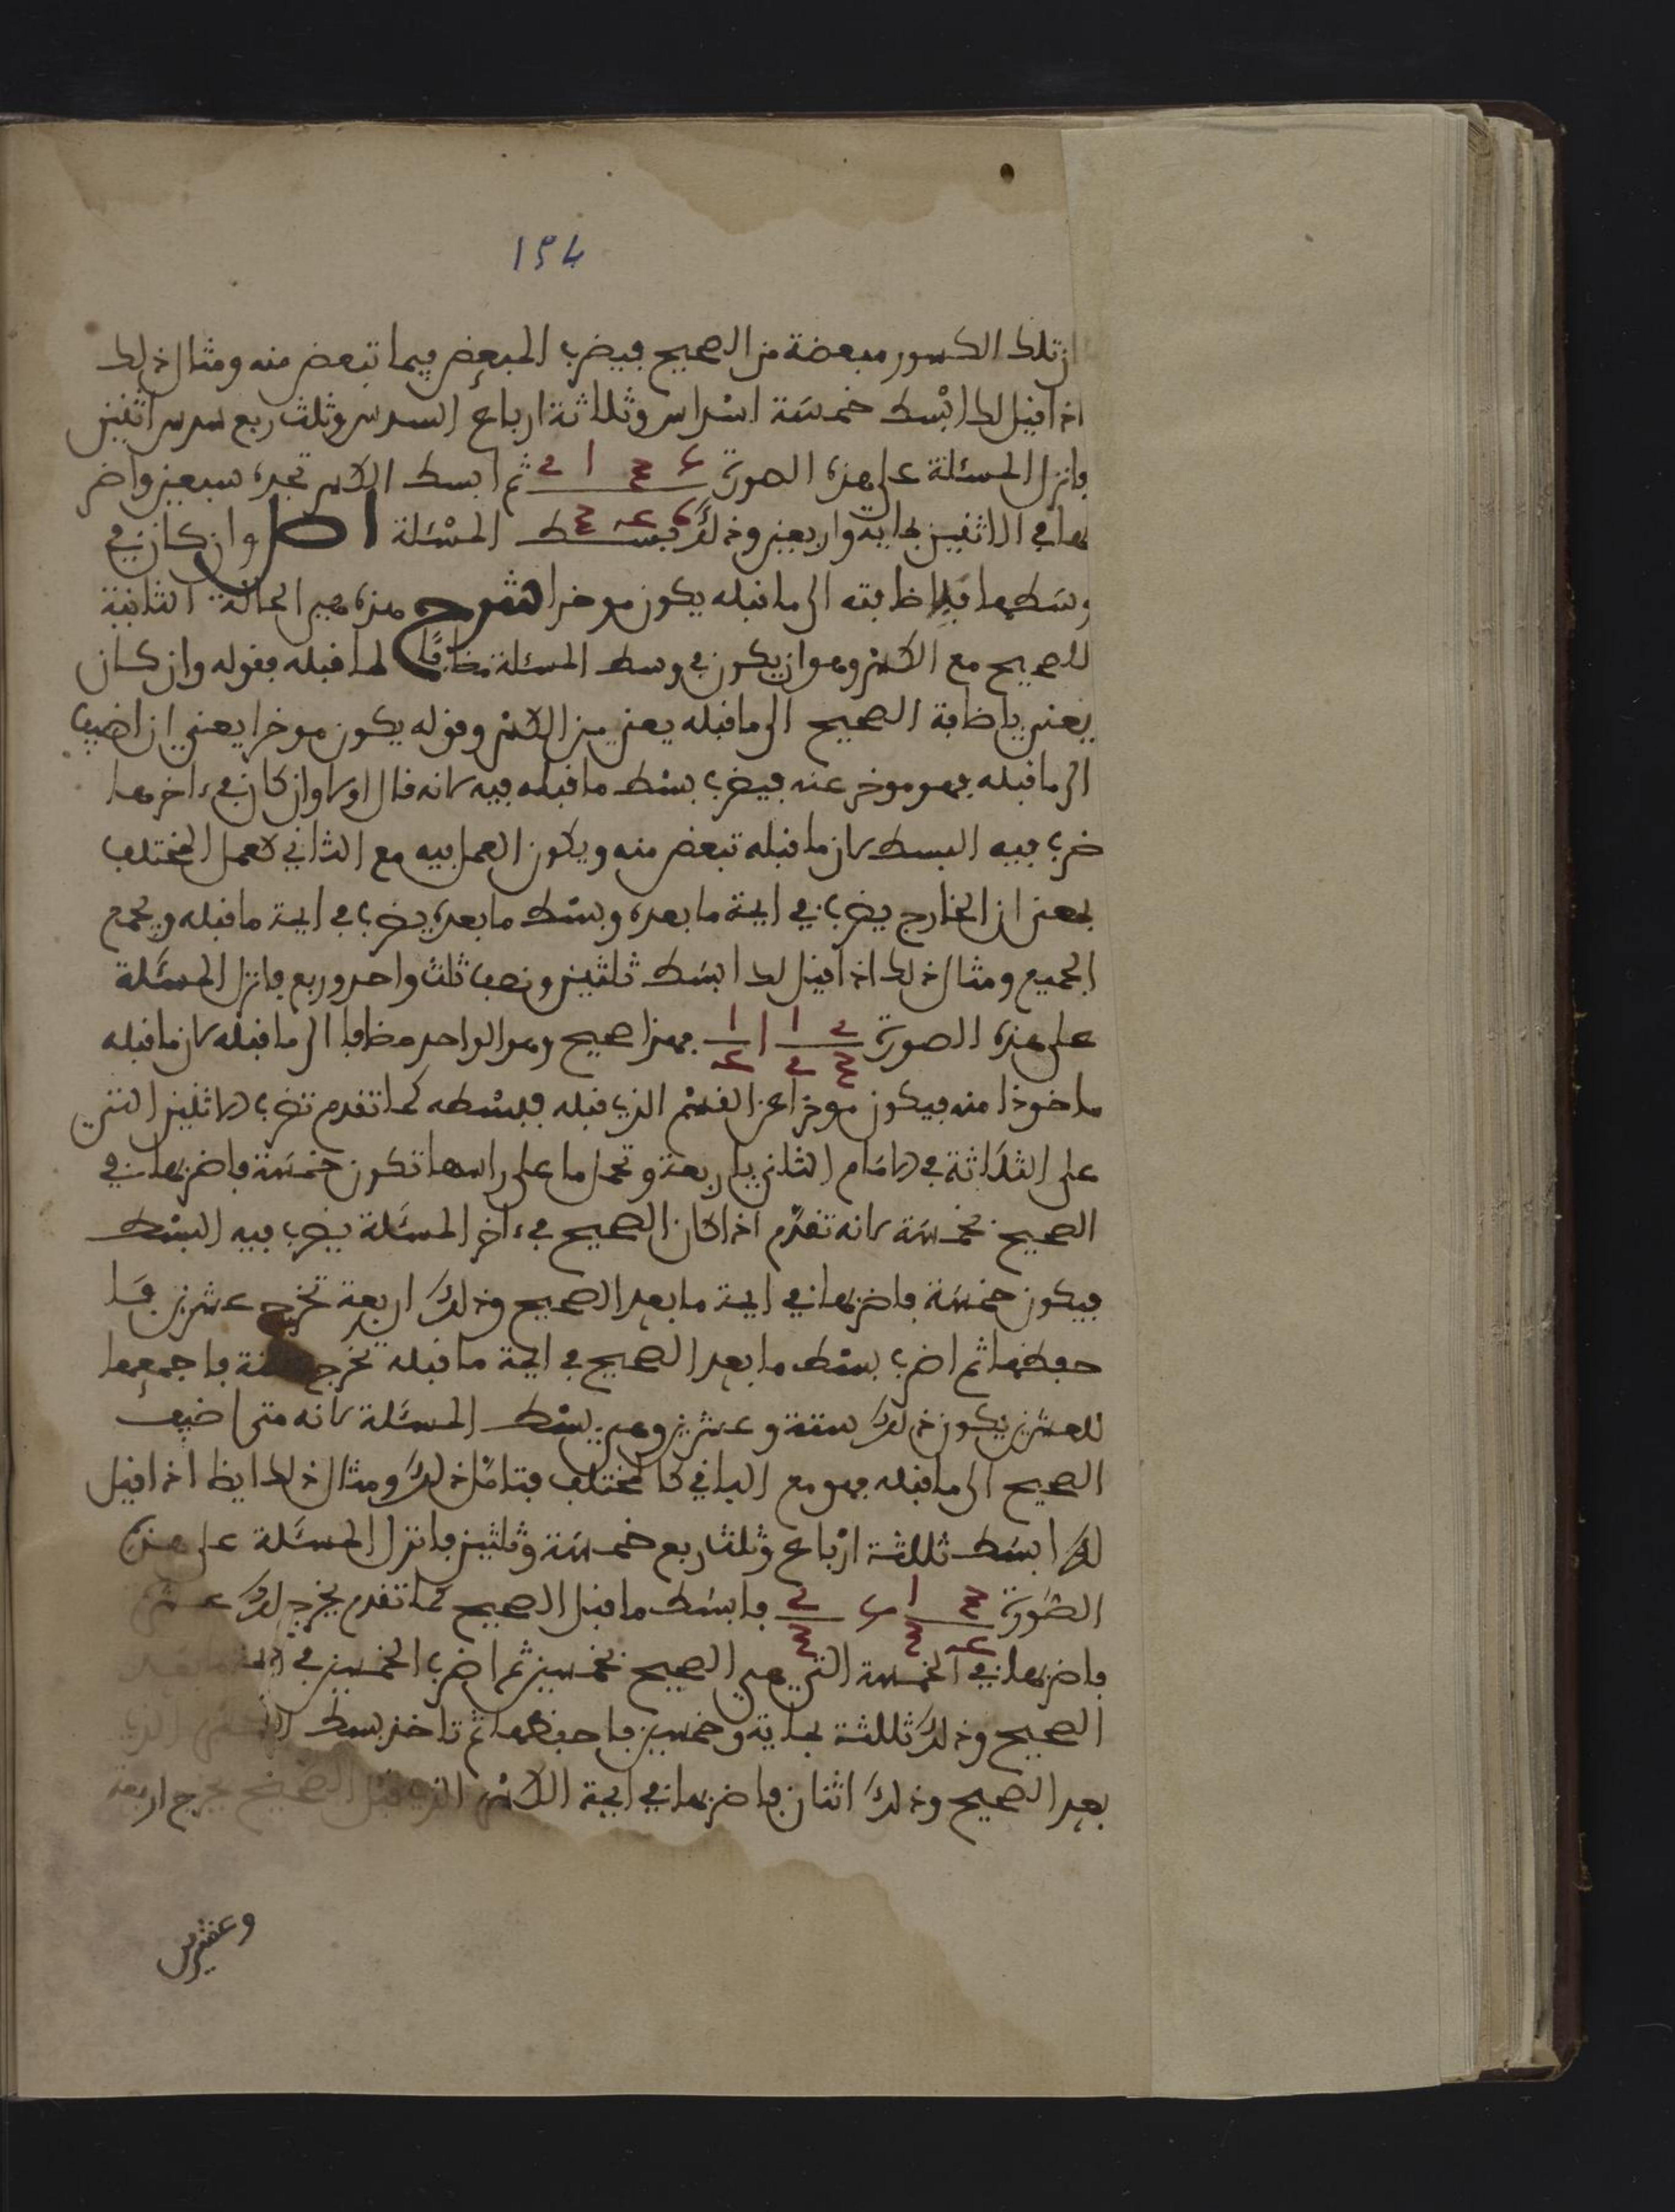 ١٥٤
ان تلك الكسور مبعضة من الصحيح فيضرب المبعض فيما تبعض منه ومثال ذلك
اذا قيل لك ابسط خمسة اسداس وثلاثة ارباع السدس وثلث ربع سدس اثنين
فانزل المسئلة على هذه الصورة ثم ابسط الكسر تجده سبعين واضر
بها في الاثنين بماية واربعين وذلك بسط المسئلة اصل وان كان في
وسطها فباضافته الى ما قبله يكون موخرا شرح هذه هي الحالة الثانية
للصحيح مع الكسر وهو ان يكون في وسط المسئلة مضافا لما قبله فقوله وان كان
يعني باضافة الصحيح الى ما قبله يعني من الكسر وقوله يكون موخرا يعني ان اضيف
الى ما قبله فهو موخر عنه فيضرب بسط ما قبله فيه لانه قال اولا وان كان في ءاخرها
ضرب فيه البسط لان ما قبله تبعض منه ويكون العمل فيه مع الثاني كعمل المختلف
بمعنى ان الخارج يضرب في ايمة ما بعده وبسط ما بعده يضرب في ايمة ما قبله ويجمع
الجميع ومثال ذلك اذا قيل لك ابسط ثلثين ونصف ثلث واحد وربع فانزل المسئلة
على هذه الصورة فهذا صحيح وهو الواحد مضافا الى ما قبله لان ما قبله
ماخوذا منه فيكون موخرا عن القسم الذي قبله فبسطه كما تقدم تضرب الاثنين التي
على الثلاثة في الامام الثاني باربعة وتحمل ما على راسها تكون خمسة فاضربها في
الصحيح بخمسة لانه تقدم اذا كان الصحيح في ءاخر المسئلة يضرب فيه البسط
فيكون خمسة فاضربها في ايمة ما بعد الصحيح وذلك اربعة تخرج عشرين فا
حفظها ثم اضرب بسط ما بعد الصحيح في ايمة ما قبله تخرج ستة فاجمعها
للعشرين يكون ذلك ستة وعشرين وهي بسط المسئلة لانه متى اضيف
الصحيح الى ما قبله فهو مع الباقي كالمختلف فتامل ذلك ومثال ذلك ايضا اذا قيل
لك ابسط ثلثة ارباع وثلث ربع خمسة وثلثين فانزل المسئلة على هذه
الصورة فابسط ما قبل الصحيح كما تقدم يخرج لك عشرة
فاضربها في الخمسة التي هي الصحيح بخمسين ثم اضرب الخمسين في ايمة ما بعد
الصحيح وذلك ثلثة بماية وخمسين فاحفظها ثم تاخذ بسط الكسر الذي
بعد الصحيح وذلك اثنان فاضربها في ايمة الكسر الذي قبل الصحيح يخرج اربعة
وعشرين